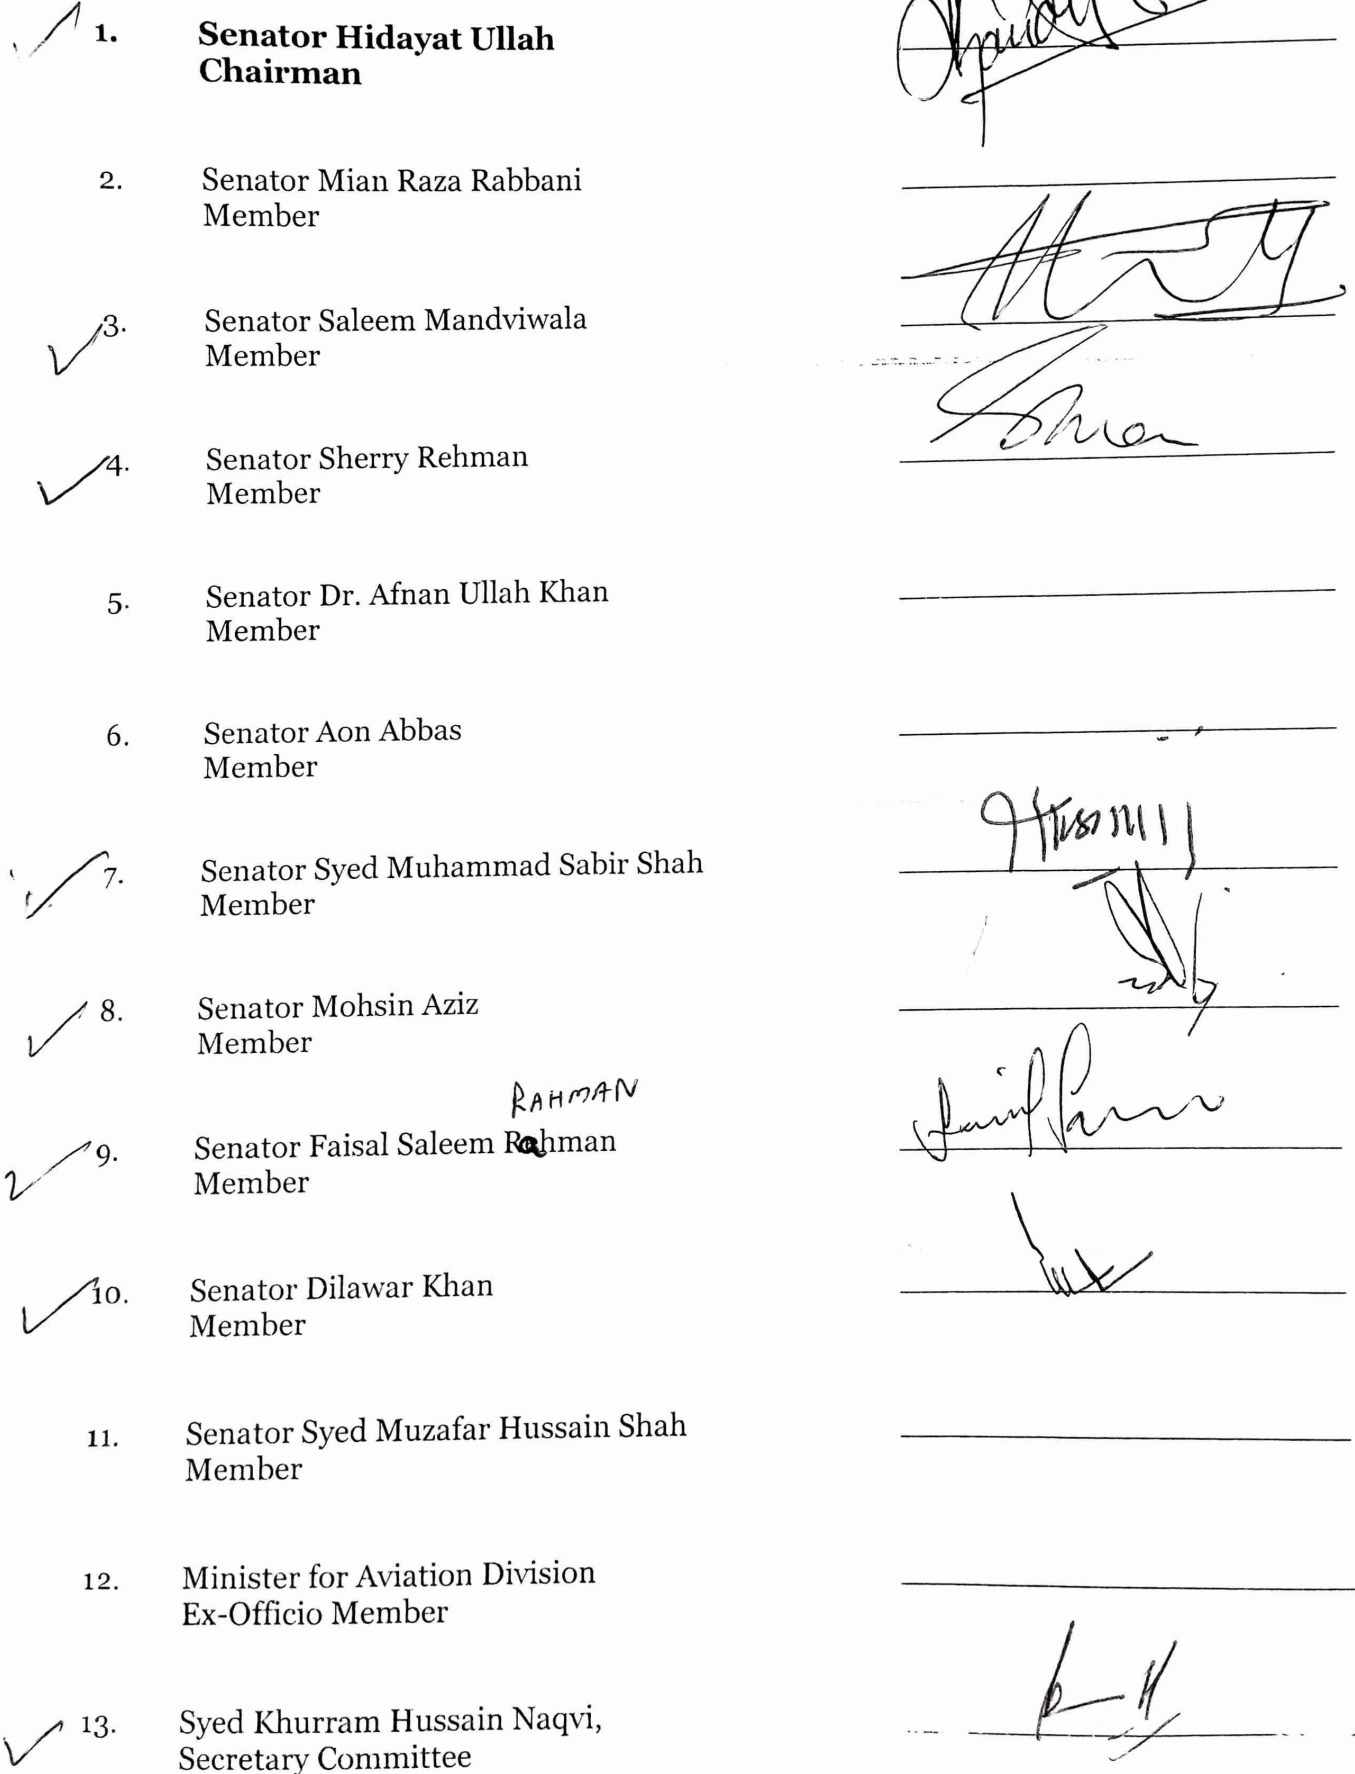 1. Senator Hidayat Ullah
Chairman
2. Senator Mian Raza Rabbani
Member
3. Senator Saleem Mandviwala
Member
4. Senator Sherry Rehman
Member
5. Senator Dr. Afnan Ullah Khan
Member
6. Senator Aon Abbas
Member
7. Senator Syed Muhammad Sabir Shah
Member
8. Senator Mohsin Aziz
Member
RAHMAN
9. Senator Faisal Saleem Rahman
Member
10. Senator Dilawar Khan
Member
11. Senator Syed Muzafar Hussain Shah
Member
12. Minister for Aviation Division
Ex-Officio Member
13. Syed Khurram Hussain Naqvi,
Secretary Committee